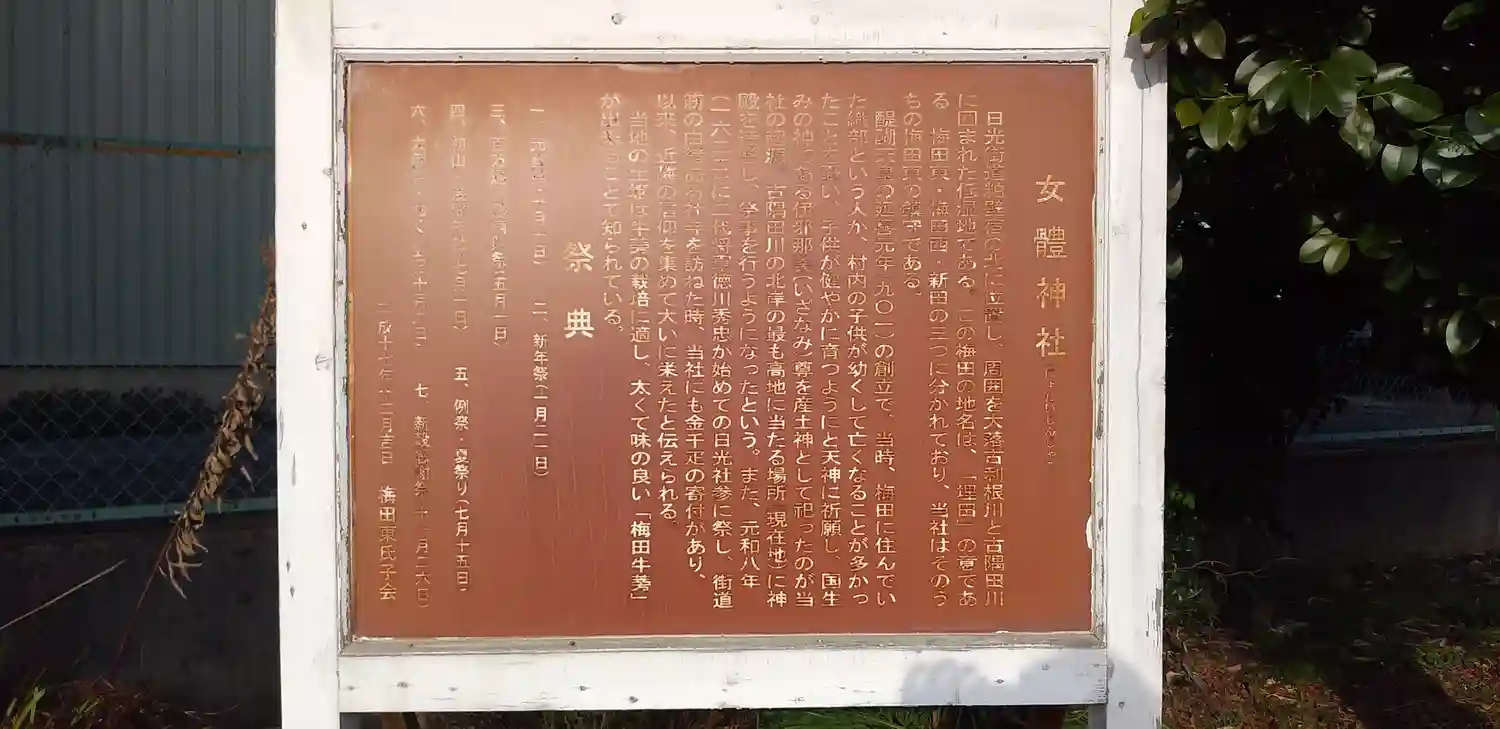 女體神社
日光街道粕壁宿の北に位置し、周囲を大落古利根川と古隅田川
に囲まれた低湿地である。この梅田の地名は、「埋田」の意であ
る 梅田東・梅田西・新田の三つに分かれており、当社はそのう
ちの梅田東の鎮守である。
醍醐天皇の延喜元年 九〇一)の創立で、当時、梅田に住んでい
た 部という人が、村内の子供が幼くして亡くなることが多かっ
たことを い、子供が健やかに育つようにと天神に祈願し、国生
みの神である伊邪那美(いざなみ)尊を産土神として祀ったのが当
社の起源。古隅田川の北岸の最も高地に当たる場所 現在地)に神
殿を し、祭事を行うようになったという。また、元和八年
(一六二二)に二代将軍徳川秀忠が始めての日光社参に祭し、街道
筋の を訪ねた時、当社にも金千疋の寄付があり、
以来、近隣の信仰を集めて大いに栄えたと伝えられる。
当地の土壌は牛蒡の栽培に適し、太くて味の良い「梅田牛蒡」
が出来ることで知られている。
祭典
一、元 一月一日) 二、新年祭(一月二一日)
三、 祭(五月一日)
四、初山 七月一日) 五、例祭・夏祭り(七月十五日)
六、 七、新穀感謝祭 十一月二六日)
成十七年十二月吉日 梅田東氏子会